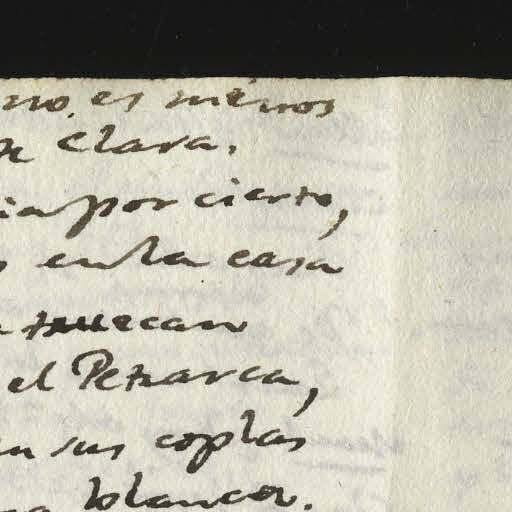 no es menos
clara.
por cierto,
en la casa
truecan
el Petrarca,
sus coplas
blancos.